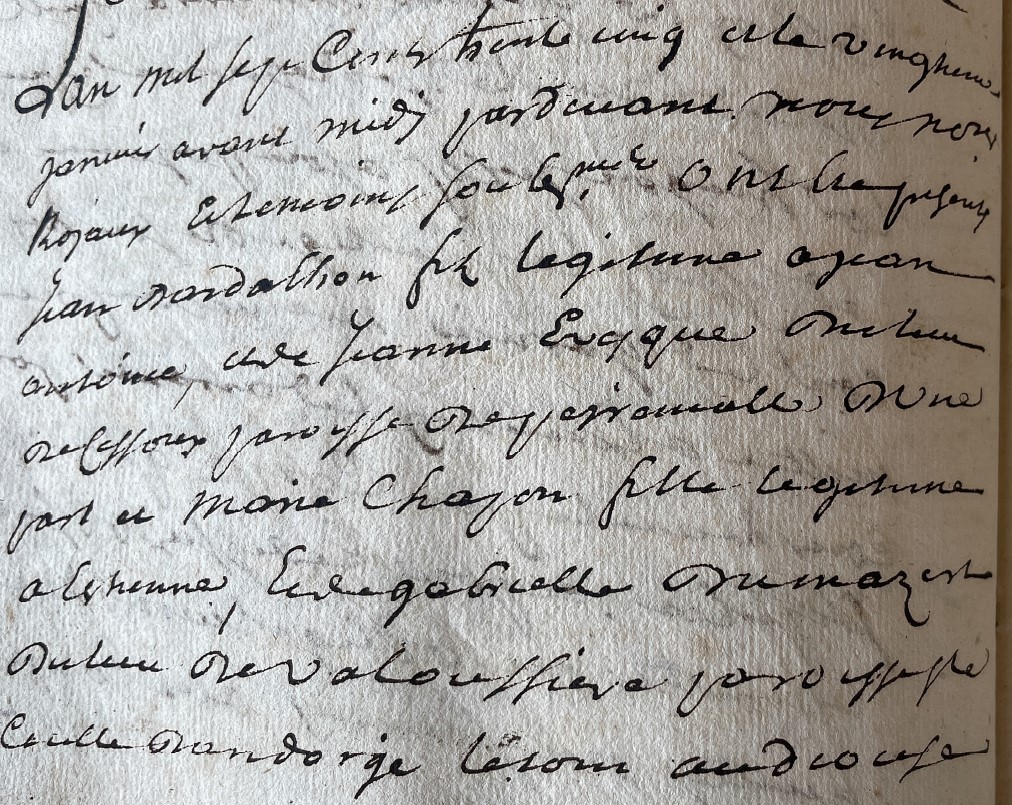 Lan mil sept Cents trente cinq et le vingtieme
janvier avant midy pardevant nous nore
Royaux et temoins soubsignés ont este presents
Jean Dardalhon fils legitime a jean
antoine, et de Jeanne Evesque du lieu
de paroisse de peiremalle D'Une
part et marie Chazon fille legitime
a estienne, et de gabrielle Dumazert
du lieu de Valoussiere paroisse ste
Cecille Dandorge lesquels